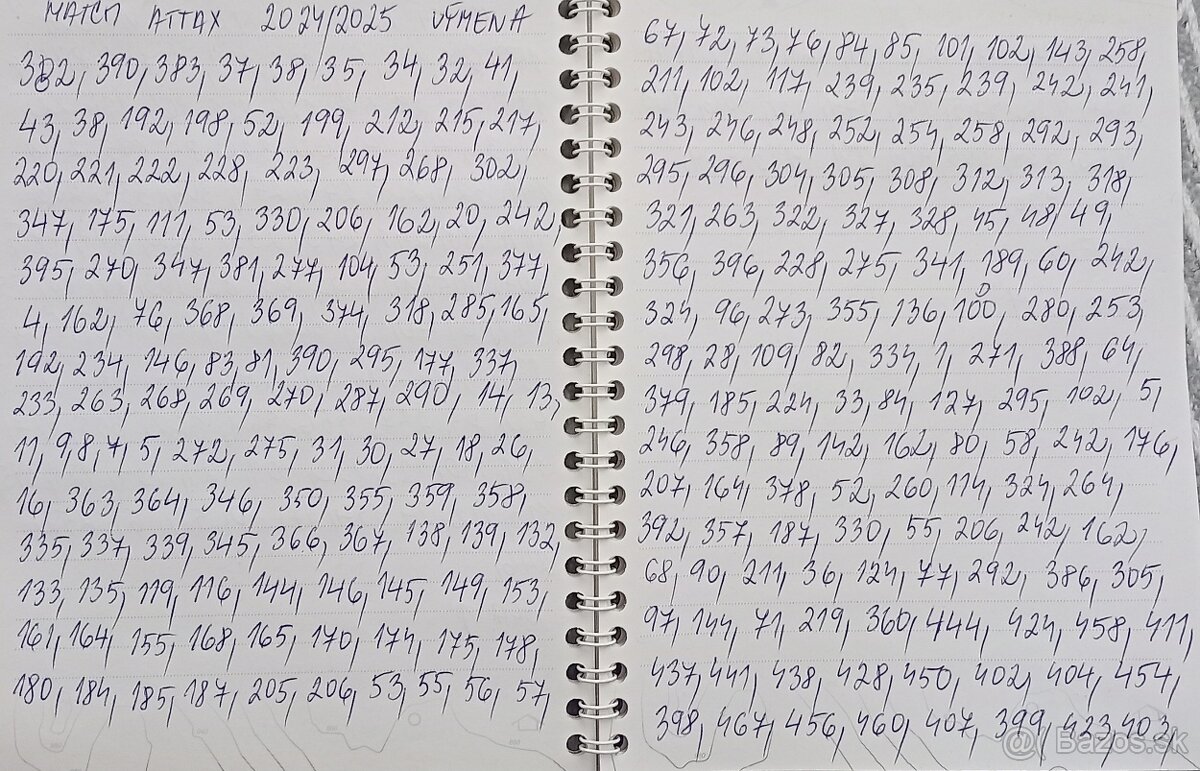 MATCH ATTAX 2024/2025 VÝMENA
382, 390, 383, 37, 38, 35, 34, 32, 41,
43, 38, 192, 198, 52, 199, 212, 215, 217,
220, 221, 222, 228, 223, 297, 268, 302,
347, 175, 111, 53, 330, 206, 162, 20, 242,
395, 270, 347, 381, 277, 104, 53, 251, 377,
4, 162, 76, 368, 369, 374, 318, 285, 165,
192, 234, 146, 83, 81, 390, 295, 177, 337,
233, 263, 268, 269, 270, 287, 290, 14, 13,
11, 9, 8, 7, 5, 272, 275, 31, 30, 27, 18, 26,
16, 363, 364, 346, 350, 355, 359, 358,
335, 337, 339, 345, 366, 367, 138, 139, 132,
133, 135, 119, 116, 144, 146, 145, 149, 153,
161, 164, 155, 168, 165, 170, 174, 175, 178,
180, 184, 185, 187, 205, 206, 53, 55, 56, 57,
67, 72, 73, 76, 84, 85, 101, 102, 143, 258,
211, 102, 117, 239, 235, 239, 242, 241,
243, 246, 248, 252, 254, 258, 292, 293,
295, 296, 304, 305, 308, 312, 313, 318,
321, 263, 322, 327, 328, 45, 48, 49,
356, 396, 228, 275, 341, 189, 60, 242,
324, 96, 273, 355, 136, 100, 280, 253,
298, 28, 109, 82, 334, 1, 271, 388, 64,
379, 185, 224, 33, 84, 127, 295, 102, 5,
246, 358, 89, 142, 162, 80, 58, 242, 176,
207, 164, 378, 52, 260, 114, 324, 264,
392, 357, 187, 330, 55, 206, 242, 162,
68, 90, 211, 36, 124, 77, 292, 386, 305,
97, 144, 71, 219, 360, 444, 424, 458, 411,
437, 441, 438, 428, 450, 402, 404, 454,
398, 467, 456, 460, 407, 399, 423, 403,
Bazos.sk